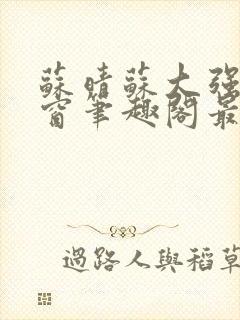 蘇晴蘇大強
窗筆趣閣最
過路人與稻草